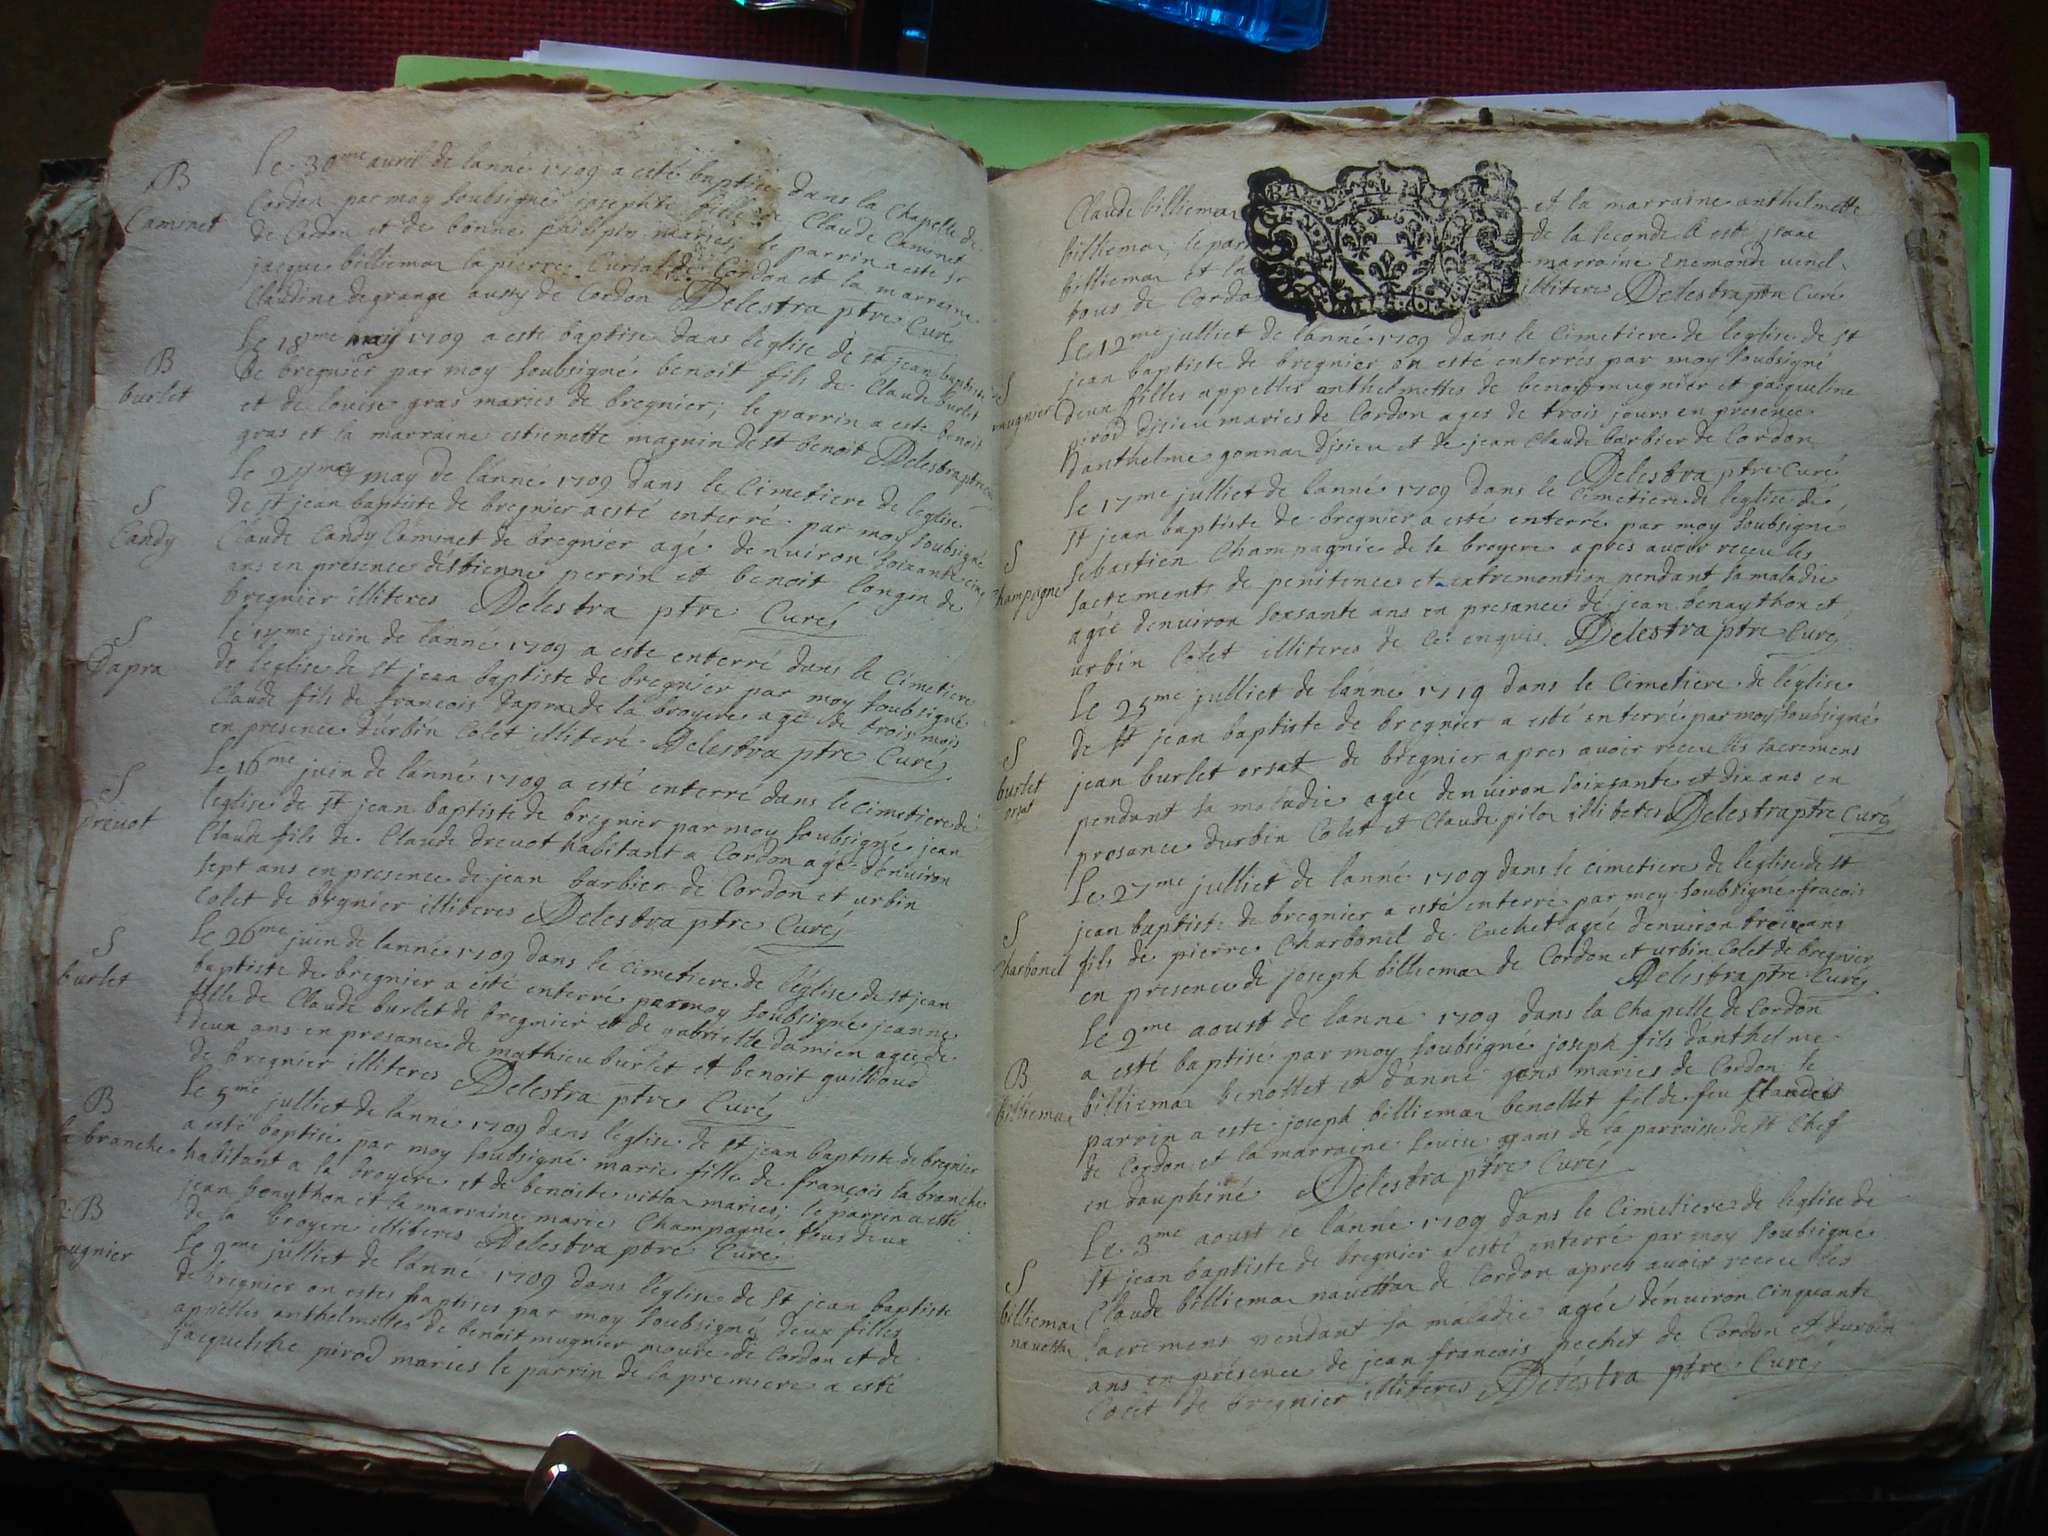 B
Caminet
Le 30me avril de lanné 1709 a esté baptisé dans la Chapelle de
Cordon par moy soubsigné josephte fille de Claude Caminet
de Cordon et de bonne philiply maries, le parrin a este sr
jacque billiema la pierre Curial de Cordon et la marraine
Claudine degrange aussy de Cordon Delestra ptre Curé
B
burlet
Le 18me may 1709 a esté baptise dans leglise de st jean baptiste
de bregnier par moy soubsigné benoit fils de Claude burlet
et de louise gras maries de bregnier; le parrin a esté benoit
gras et la marraine estienette magnin de st benoit Delestra ptre
S
Candy
Le may de lanné 1709 dans le Cimetiere de leglise
de st jean baptiste de bregnier a esté enterré par moy soubsigné
Claude Candy Caminet de bregnier agé denviron soixante cinq
ans en presence destienne perrin et benoit longin de
bregnier illiteres Delestra ptre Curé
S
Dapra
Le juin de lanné 1709 a este enterré dans le Cimetiere
de leglise de st jean baptiste de bregnier par moy soubsigné
Claude fils de francois Dapra de la broyere agé de trois mois
en presence durbin Colet illiteré Delestra ptre Curé
S
Drevot
Le 16me juin de lanné 1709 a esté enterré dans le Cimetiere de
leglise de st jean baptiste de bregnier par moy soubsigné jean
Claude fils de Claude drevot habitant a Cordon agé denviron
sept ans en presence de jean barbier de Cordon et urbin
Colet de bregnier illiteres Delestra ptre Curé
S
burlet
Le 26me juin de lanné 1709 dans le Cimetiere de leglise de st jean
baptiste de bregnier a esté enterré par moy soubsigné jeanne
fille de Claude burlet de bregnier et de gabrielle damien agée de
deux ans en presance de mathieu burlet et benoit guilloud
de bregnier illiteres Delestra ptre Curé
B
la branche
Le 5me julliet de lanné 1709 dans leglise de st jean baptiste de bregnier
a esté baptisé par moy soubsigné marie fille de francois la branche
habitant a la broyere et de benoite maries; le parrin a esté
jean benython et la marraine marie Champagne tous deux
de la broyere illiteres Delestra ptre Curé
2 B
mugnier
Le 9me julliet de lanné 1709 dans leglise de st jean baptiste
de bregnier on estes baptises par moy soubsigné deux filles
appelles anthelmettes de benoit mugnier moure de Cordon et de
jacqueline pirod maries le parrin de la premiere a esté
Claude billiema et la marraine anthelmette
billiema, le par de la seconde est isaac
billiema et la marraine Enemonde
tous de Cordon illiteres Delestra ptre Curé
S
mugnier
Le 12me julliet de lanné 1709 dans le Cimetiere de leglise de st
jean baptiste de bregnier on esté enterrés par moy soubsigné
deux filles appelles anthelmettes de benoit mugnier et jacqueline
pirod maries de Cordon ages de trois jours en presence
danthelme gonna et de jean Claude barbier de Cordon
Delestra ptre Curé
S
Champagne
Le 17me julliet de lanné 1709 dans le Cimetiere de leglise de
st jean baptiste de bregnier a esté enterré par moy soubsigné
sebastien Champagnie de la broyere apres avoir receu les
sacrements de penitence et extremontion pendant sa maladie
agée denviron soxsante ans en presance de jean benaython et
urbin Colet illiteres de ce enquis. Delestra ptre Curé
S
burlet
orsat
Le 25me julliet de lanné 1719 dans le Cimetiere de leglise
de st jean baptiste de bregnier a esté enterré par moy soubsigné
jean burlet orsat de bregnier apres avoir receu les sacremens
pendant sa maladie agée denviron soixsante et dix ans en
presance durbin Colet et Claude pilo illiteres Delestra ptre Curé
S
Charbonel
Le 27me julliet de lanné 1709 dans le cimetiere de leglise de st
jean baptiste de bregnier a esté enterré par moy soubsigné fracois
fils de pierre Charbonel de Cuchet agée denviron trois ans
en presence de joseph billiema de Cordon et urbin Colet de bregnier
Delestra ptre Curé
B
billiema
Le 2me aoust de lanné 1709 dans la Chapelle de Cordon
a esté baptisé par moy soubsigné joseph fils danthelme
billiema benollet et danne gens maries de Cordon le
parrin a este joseph billiema benollet fil de feu
de Cordon et la marraine de la parroise de st Chef
en dauphiné Delestra ptre Curé
S
billiema
navetta
Le 3me aoust de lanné 1709 dans le Cimetiere de leglise de
st jean baptiste de bregnier a esté enterré par moy soubsigné
Claude billiema navetta de Cordon apres avoir receu les
sacremens pendant sa maladie agée denviron cinquante
ans en présence de jean francois pechet de Cordon et durbin
Colet de bregnier illiteres Delestra ptre Curé